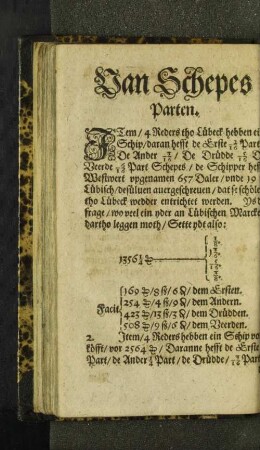 Van Schepes
Parten.
ITem/ 4 Reders tho Lübeck hebben ei
Schip/ daran hefft de Erste Part
De Ander / De Drüdde
Veerde Part Schepes / de Schipper hef
Westwert upgenamen 657 Daler/ unde 19
Lübisch/ desüluen auergeschreuen/ dat se schöle
tho Lübeck wedder entrichtet werden. Js d
frage/ wo veel ein yder an Lübischen Marcke
dartho leggen moth/ Sette ydt also:
1356
169 / 8 ß/ 6 / dem Ersten.
254 / 4 ß/ 9 / dem Andern.
Facit
423 / 13 ß/ 3 / dem Drüdden.
508 / 9 ß/ 6 / dem Veerden.
2. Jtem/ 4 Reders hebben ein Schip vo
köfft/ vor 2564 / Daranne hefft de Erste
Part/ de Ander Part/ de Drüdde/ Part